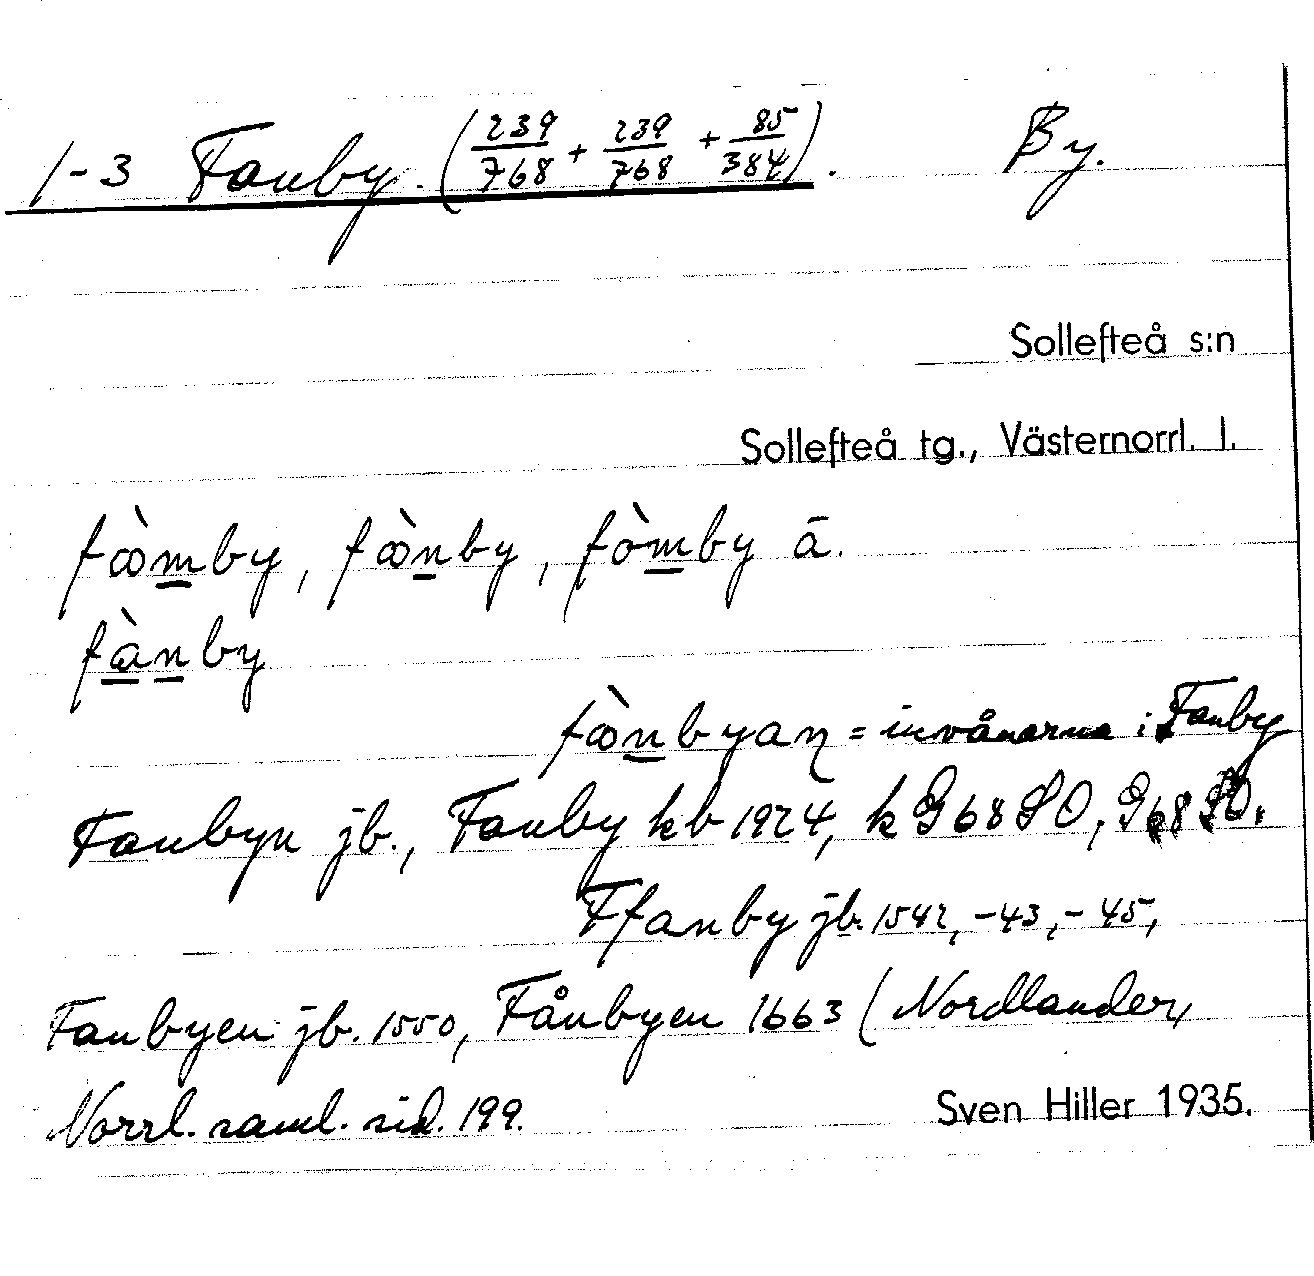 1-3 Fanby. (239/768 + 239/768 + 85/384). By.
Sollefteå s:n
Sollefteå tg., Västernorrl. l.
fòomby, fòonby, fòmby ā.
fànby
fòonbyaɳ = invånarna i Fanby
Fanbyn jb., Fanby kb 1924, k G 68 SO, G 68 SO.
Ffanby jb. 1542, -43, -45,
Fanbyen jb. 1550, Fånbyen 1663 (Nordlander,
Norrl. saml. sid. 199.
Sven Hiller 1935.